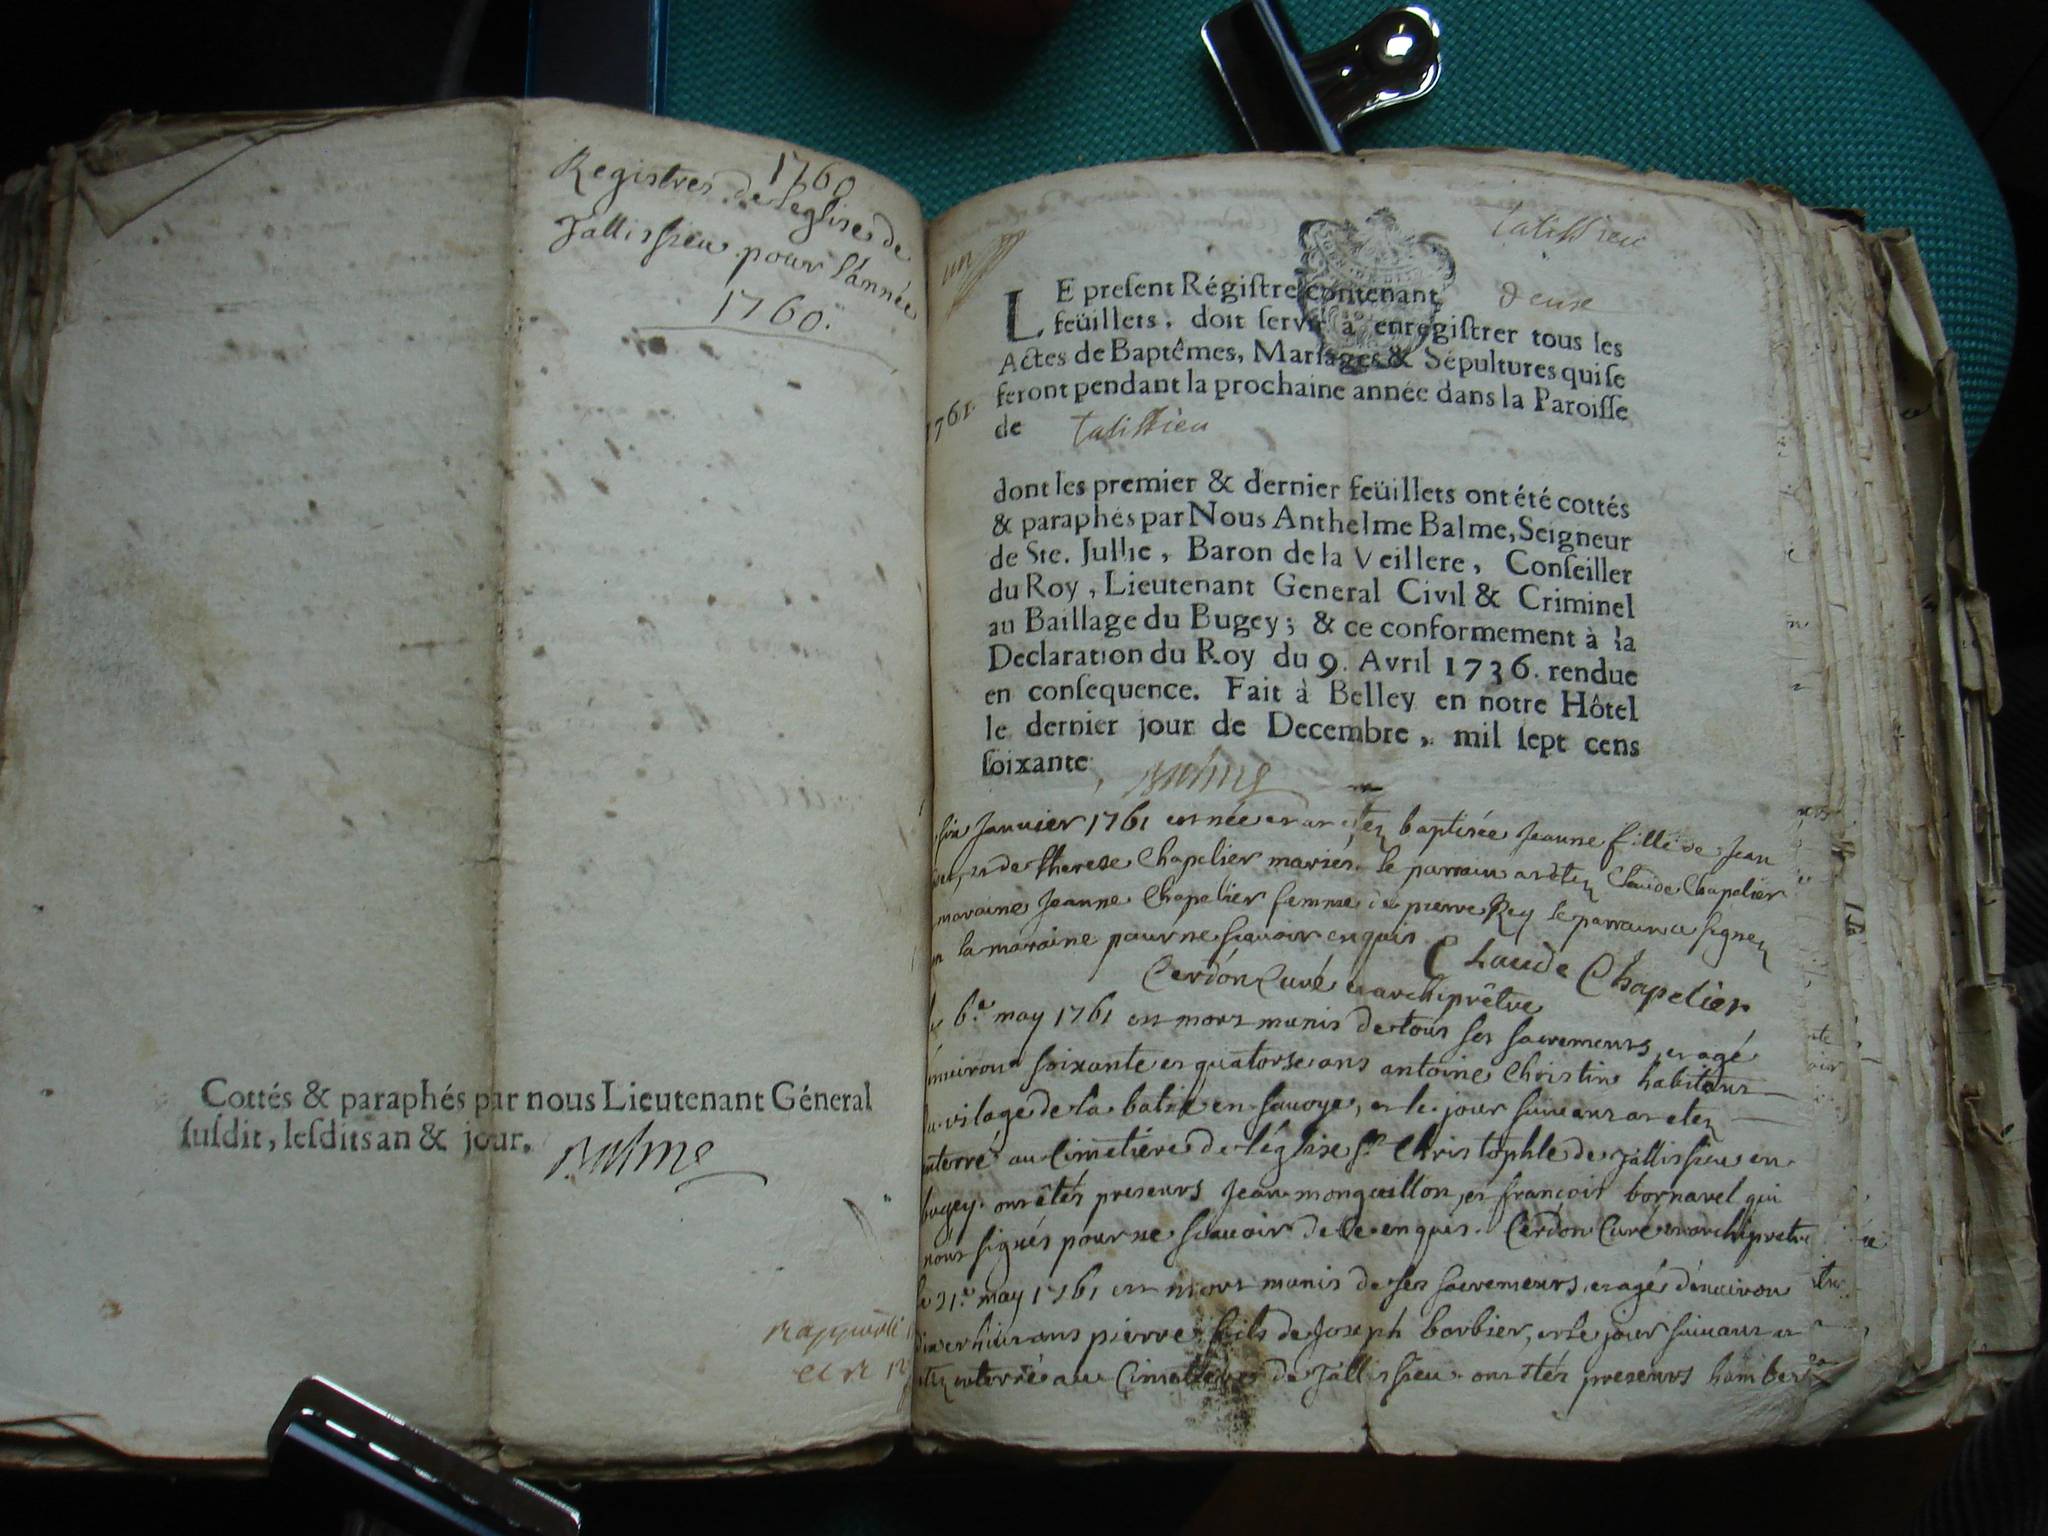 1760
Registres de leglise de
Tallissieu pour l'année
1760.
Cottés & paraphés par nous Lieutenant Géneral
susdit, lesdits an & jour.
Balme
un
Talissieu
LE present Régistre contenant deuse
feüillets, doit servir à enregistrer tous les
Actes de Baptêmes, Mariages & Sépultures qui se
feront pendant la prochaine année dans la Paroisse
1761.
de talissieu
dont les premier & dernier feüillets ont été cottés
& paraphés par Nous Anthelme Balme, Seigneur
de Ste. Jullie, Baron de la Veillere, Conseiller
du Roy, Lieutenant General Civil & Criminel
au Baillage du Bugey; & ce conformement à la
Declaration du Roy du 9. Avril 1736. rendue
en consequence. Fait à Belley en notre Hôtel
le dernier jour de Decembre, mil sept cens
soixante
Balme
six Janvier 1761 est née et a etez baptisée Jeanne fille de Jean
et de therese Chapelier mariés. le parrain a etez Claude Chapelier
maraine Jeanne Chapelier femme de pierre Rey le parrain a signez
la maraine pour ne sçavoir enquis Claude Chapelier
Cerdon Curé et archiprêtre
le 6.e may 1761 est mort munis de tous ses sacrements, et agé
environ soixante et quatorse ans antoine Christin habitant
du vilage de la batie en savoye, et le jour suivant a etez
enterré au Cimetiére de l'église st Christophle de Tallissieu en
bugey. ont êtés presents Jean monguillon, et françois bornarel qui
n'ont signés pour ne sçavoir de ce enquis. Cerdon Curé et archiprêtre
le 21.e may 1761 est mort munis de ses sacrements, et agé d'environ
dix et huit ans pierre fils de Joseph barbier, et le jour suivant a
etez enterré au Cimetiere de Tallissieu. ont étés presents humbert